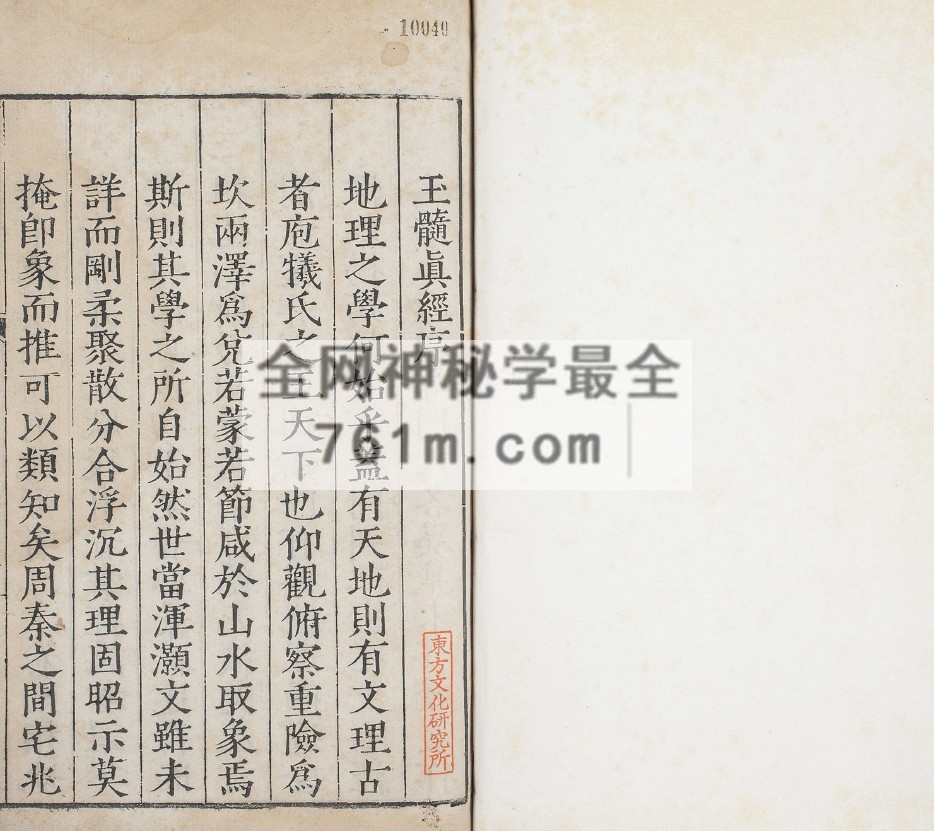 10040
玉髓眞經序
地理之學何始乎蓋有天地則有文理古
者庖犧氏之王天下也仰觀俯察重險爲
坎兩澤爲兌若蒙若節咸於山水取象焉
斯則其學之所自始然世當渾灝文雖未
詳而剛柔聚散分合浮沉其理固昭示莫
掩卽象而推可以類知矣周秦之間宅兆
東方文化研究所
全网神秘学最全
761m.com